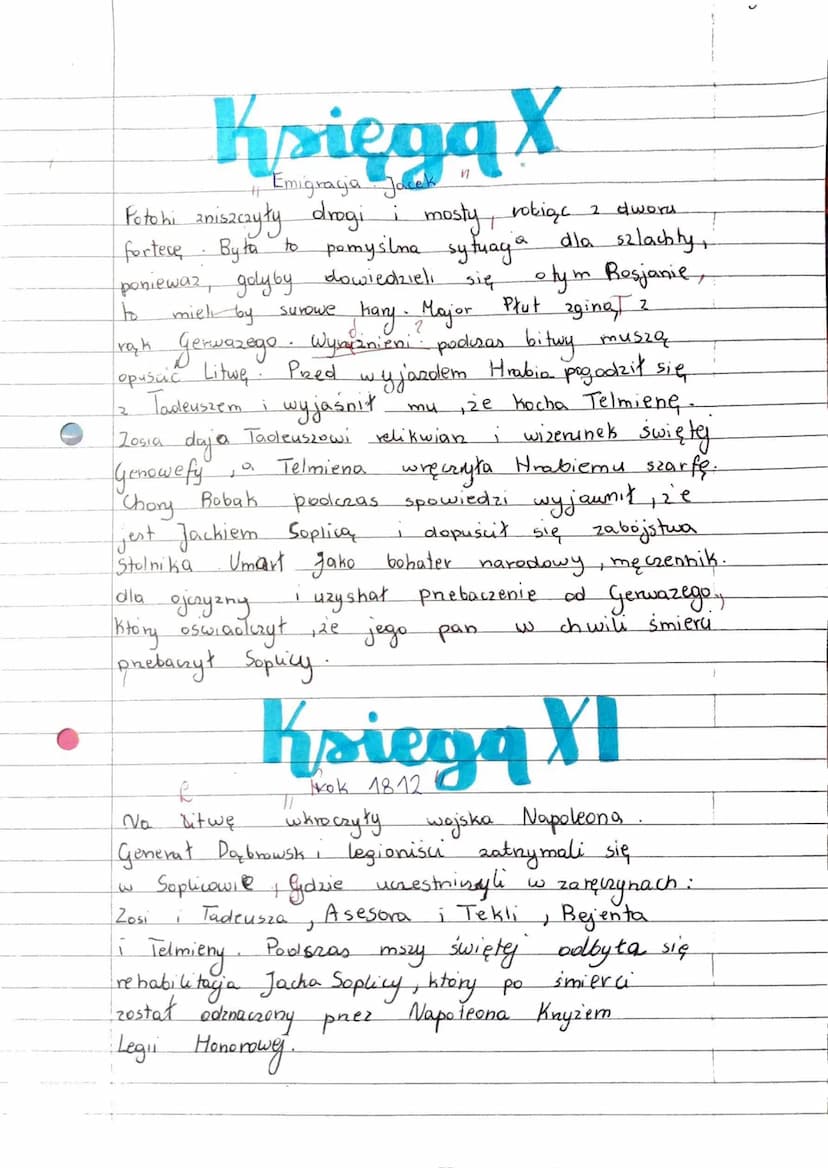 Księga X
„Emigracja. Jacek"
Potoki zniszczyły drogi i mosty, robiąc z dworu
fortecę. Była to pomyślna sytuacja dla szlachty,
ponieważ, gdyby dowiedzieli się o tym Rosjanie,
to mieli by surowe kary. Major Płut zginął z
rąk Gerwazego. ? podczas bitwy muszą
opuścić Litwę. Przed wyjazdem Hrabia pogodził się
z Tadeuszem i wyjaśnił mu, że kocha Telmienę.
Zosia daja Tadeuszowi relikwiarz i wizerunek świętej
Genowefy, a Telmiena wręczyła Hrabiemu szarfę.
Chory Robak podczas spowiedzi wyjawnił, że
jest Jackiem Soplicą i dopuścił się zabójstwa
Stolnika Umarł jako bohater narodowy, męczennik.
dla ojczyzny i uzyskał przebaczenie od Gerwazego,
który oświadczył, że jego pan w chwili śmierci
przebaczył Soplicy.
Księga XI
„Rok 1812"
Na Litwę wkroczyły wojska Napoleona.
Generał Dąbrowski i legioniści zatrzymali się
w Soplicowie, gdzie uczestniczyli w zaręczynach:
Zosi i Tadeusza, Asesora i Tekli, Rejenta
i Telmieny. Podszas mszy świętej odbyła się
rehabilitacja Jacka Soplicy, który po śmierci
został odznaczony przez Napoleona Krzyżem
Legii Honorowej.